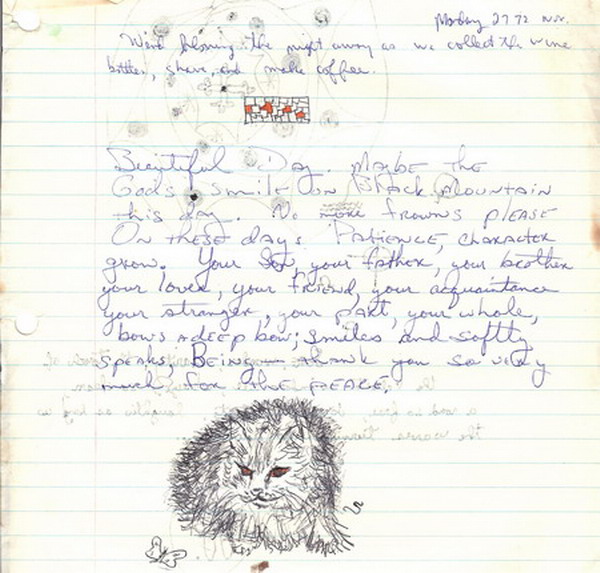 Monday 27 72 Nov.
Wind blowing the night away as we collect the wine
bottles, shave, and make coffee.
Beautiful Day. Maybe the
Gods smile on Black Mountain
this day. No more frowns please
On these days. Patience, character
grow. Your Son, your father, your brother
your lover, your friend, your acquaintance
your stranger, your part, your whole,
bows a deep bow; smiles and softly
speaks, Being — thank you so very
much for the peace.